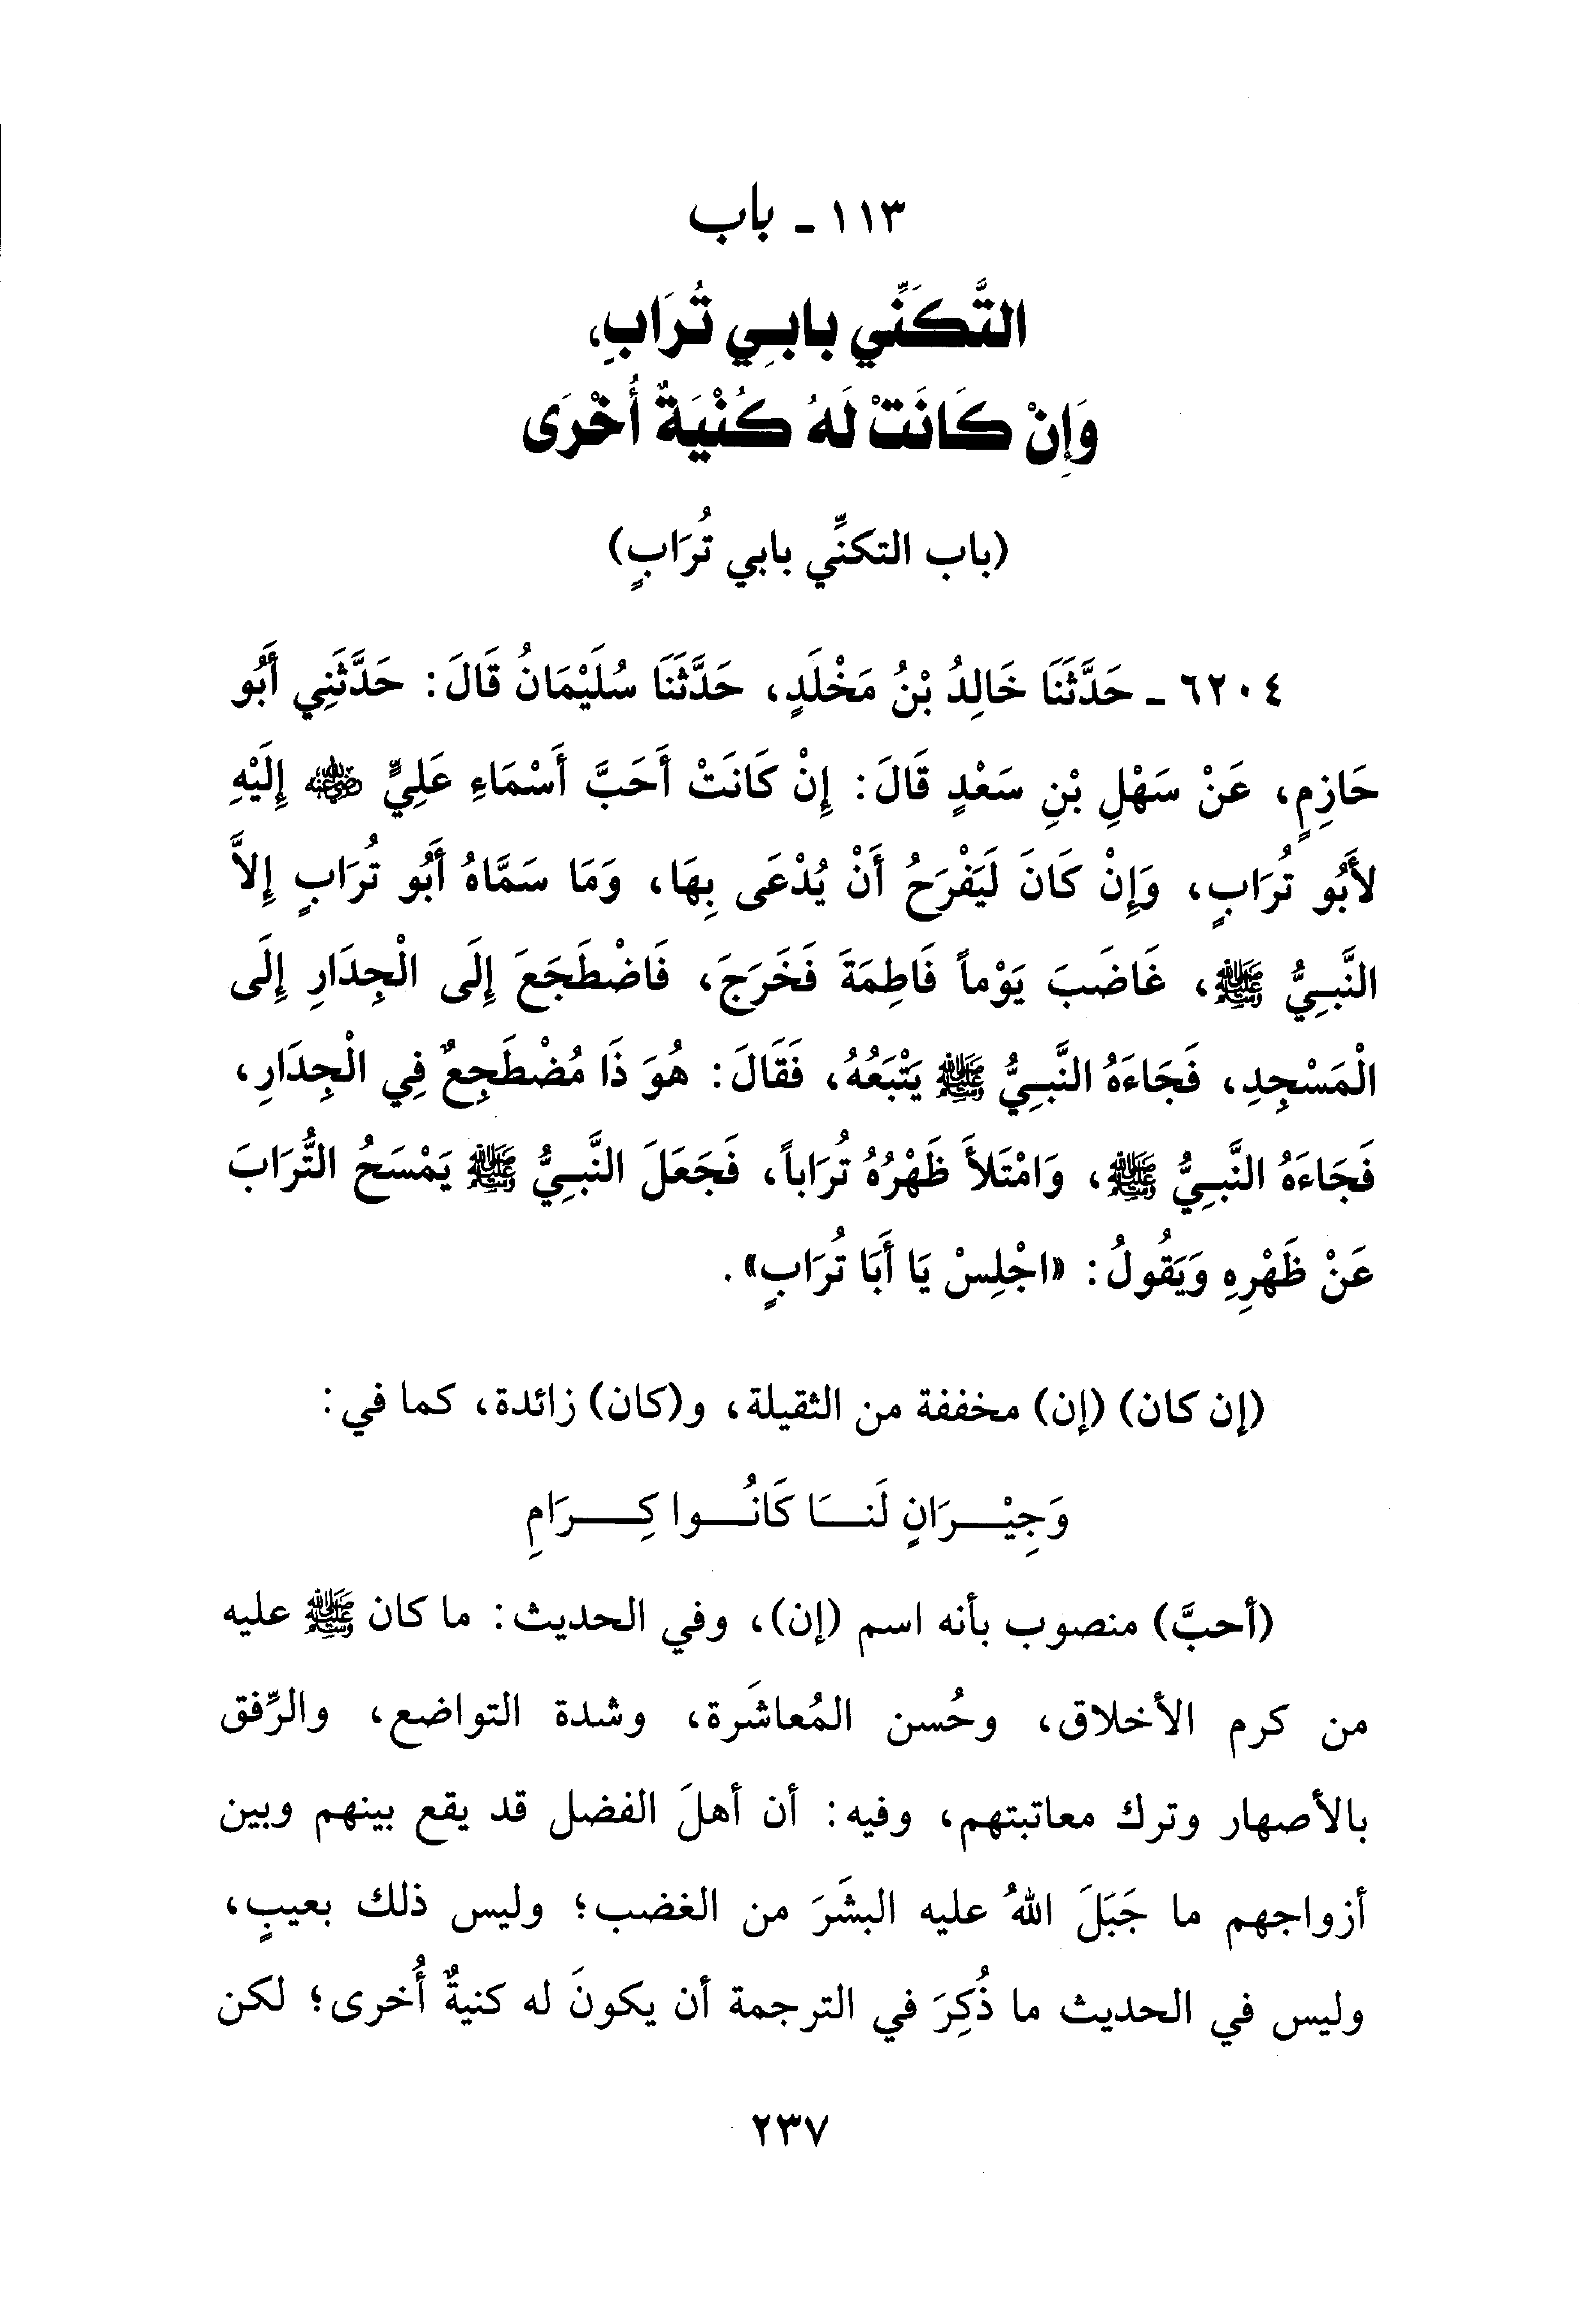 ١١٣ - باب
التَّكَنِّي بابِي تُرَابِ،
وَإِنْ كَانَتْ لَهُ كُنْيَةٌ أُخْرَى
(باب التكنِّي بابي تُرَابٍ)
٦٢٠٤ - حَدَّثَنَا خَالِدُ بْنُ مَخْلَدٍ، حَدَّثَنَا سُلَيْمَانُ قَالَ: حَدَّثَنِي أَبُو
حَازِمٍ، عَنْ سَهْلِ بْنِ سَعْدٍ قَالَ: إِنْ كَانَتْ أَحَبَّ أَسْمَاءِ عَلِيٍّ رضي الله عنه إِلَيْهِ
لأَبُو تُرَابٍ، وَإِنْ كَانَ لَيَفْرَحُ أَنْ يُدْعَى بِهَا، وَمَا سَمَّاهُ أَبُو تُرَابٍ إِلاَّ
النَّبِيُّ ﷺ، غَاضَبَ يَوْماً فَاطِمَةَ فَخَرَجَ، فَاضْطَجَعَ إِلَى الْجِدَارِ إِلَى
الْمَسْجِدِ، فَجَاءَهُ النَّبِيُّ ﷺ يَتْبَعُهُ، فَقَالَ: هُوَ ذَا مُضْطَجِعٌ فِي الْجِدَارِ،
فَجَاءَهُ النَّبِيُّ ﷺ، وَامْتَلأَ ظَهْرُهُ تُرَاباً، فَجَعَلَ النَّبِيُّ ﷺ يَمْسَحُ التُّرَابَ
عَنْ ظَهْرِهِ وَيَقُولُ: «اجْلِسْ يَا أَبَا تُرَابٍ».
(إن كان) (إن) مخففة من الثقيلة، و(كان) زائدة، كما في:
وَجِيْرَانٍ لَنَا كَانُوا كِرَامِ
(أحبَّ) منصوب بأنه اسم (إن)، وفي الحديث: ما كان ﷺ عليه
من كرم الأخلاق، وحُسن المُعاشَرة، وشدة التواضع، والرِّفق
بالأصهار وترك معاتبتهم، وفيه: أن أهلَ الفضل قد يقع بينهم وبين
أزواجهم ما جَبَلَ اللهُ عليه البشَرَ من الغضب؛ وليس ذلك بعيبٍ،
وليس في الحديث ما ذُكِرَ في الترجمة أن يكونَ له كنيةٌ أُخرى؛ لكن
٢٣٧